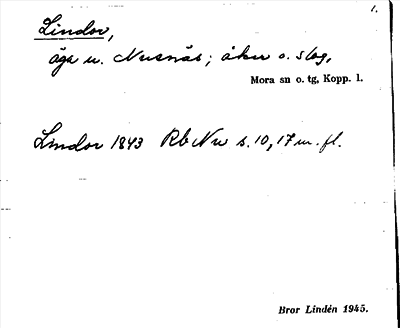 1.
Lindor,
äga u. Nusnäs; åker o. slog,
Mora sn o. tg, Kopp. l.
Lindor 1843 Rb Nu s. 10, 17 m. fl.
Bror Lindén 1945.